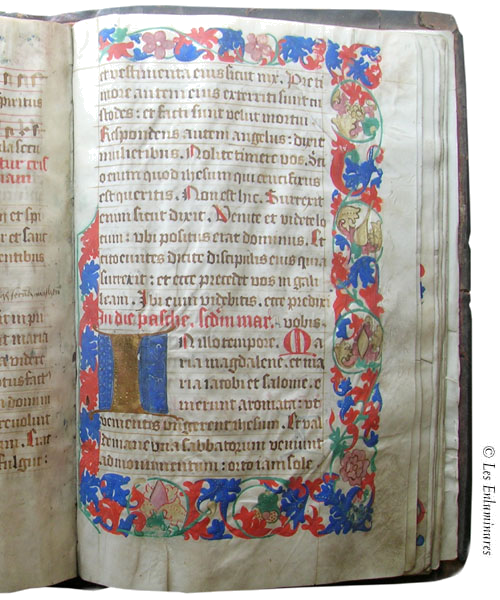 piritus
la secu
tur ceis
iam
in et spi
or et sanc
entibus
maria
e videre
otus fact
a domini
revolvit
m. Erat
fulgur:
et vestimenta eius sicut nix. Preti
more autem eius exterriti sunt cu
stodes: et facti sunt velut mortui.
Respondens autem angelus: dixit
mulieribus. Nolite timere vos. Sci
o enim quod ihesum qui crucifixus
est queritis. Non est hic. Surrexit
enim sicut dixit. Venite et videte lo
cum: ubi positus erat dominus. Et
cito euntes dicite discipulis eius quia
surrexit: et ecce precedet vos in gali
leam. Ibi eum videbitis. ecce predixi
In die pasche. scdm mar. vobis.
In illo tempore. Ma
ria magdalene. et ma
ria iacobi et salome. e
merunt aromata: ut
venientes ungerent ihesum. Et val
de mane una sabbatorum veniunt
ad monumentum: orto iam sole
© Les Enluminures